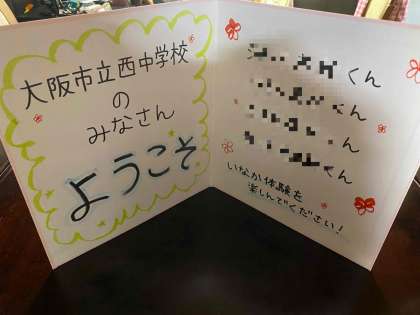 大阪市立西中学校
の
みなさん
ようこそ
くん
くん
くん
くん
いなか体験を
楽しんでください！